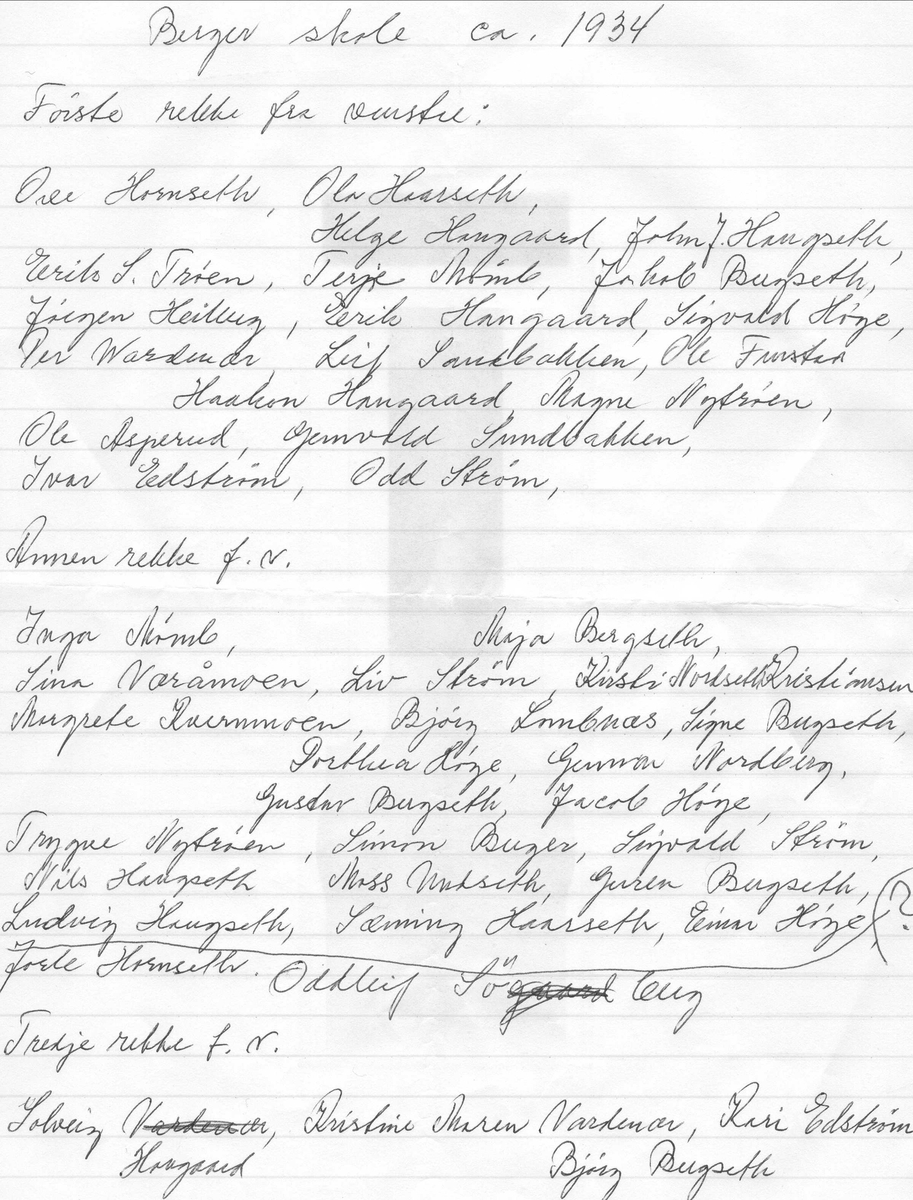 Berger skole ca. 1934
Første rekke fra venstre:
Ole Hornseth, Ola Haarseth,
Helge Haugaard, John J. Haugseth,
Eerik S. Trøen, Terje Momb, Jakob Bergseth,
Jørgen Heiberg, Eerik Haugaard, Sigvald Høge,
Per Wardenær, Leif Sandbakken, Ole Furstad
Haakon Haugaard Magne Nytrøen,
Ole Asperud, Gunvald Sundbakken,
Ivar Eedström, Odd Strøm,
Annen rekke f. v.
Inga Momb, Maja Bergseth,
Sina Væråmoen, Liv Strøm, Kirsti Nordseth Kristiansen
Margrete Kvernmoen, Bjørg Lombnæs, Signe Bergseth,
Dorthea Høge, Gunvor Nordberg.
Gustav Bergseth, Jacob Høge,
Trygve Nytrøen, Simon Berger, Sigvald Strøm,
Nils Haugseth Moss Undseth, Guren Bergseth,
Ludvig Haugseth, Sæming Haarseth, Einar Høge, (?)
Jorle Hornseth. Oddleif Sögaard berg
Tredje rekke f. v.
Solveig Vardenær, Kristine Maren Vardenær, Kari Edström
Haugaard Bjørg Bergseth